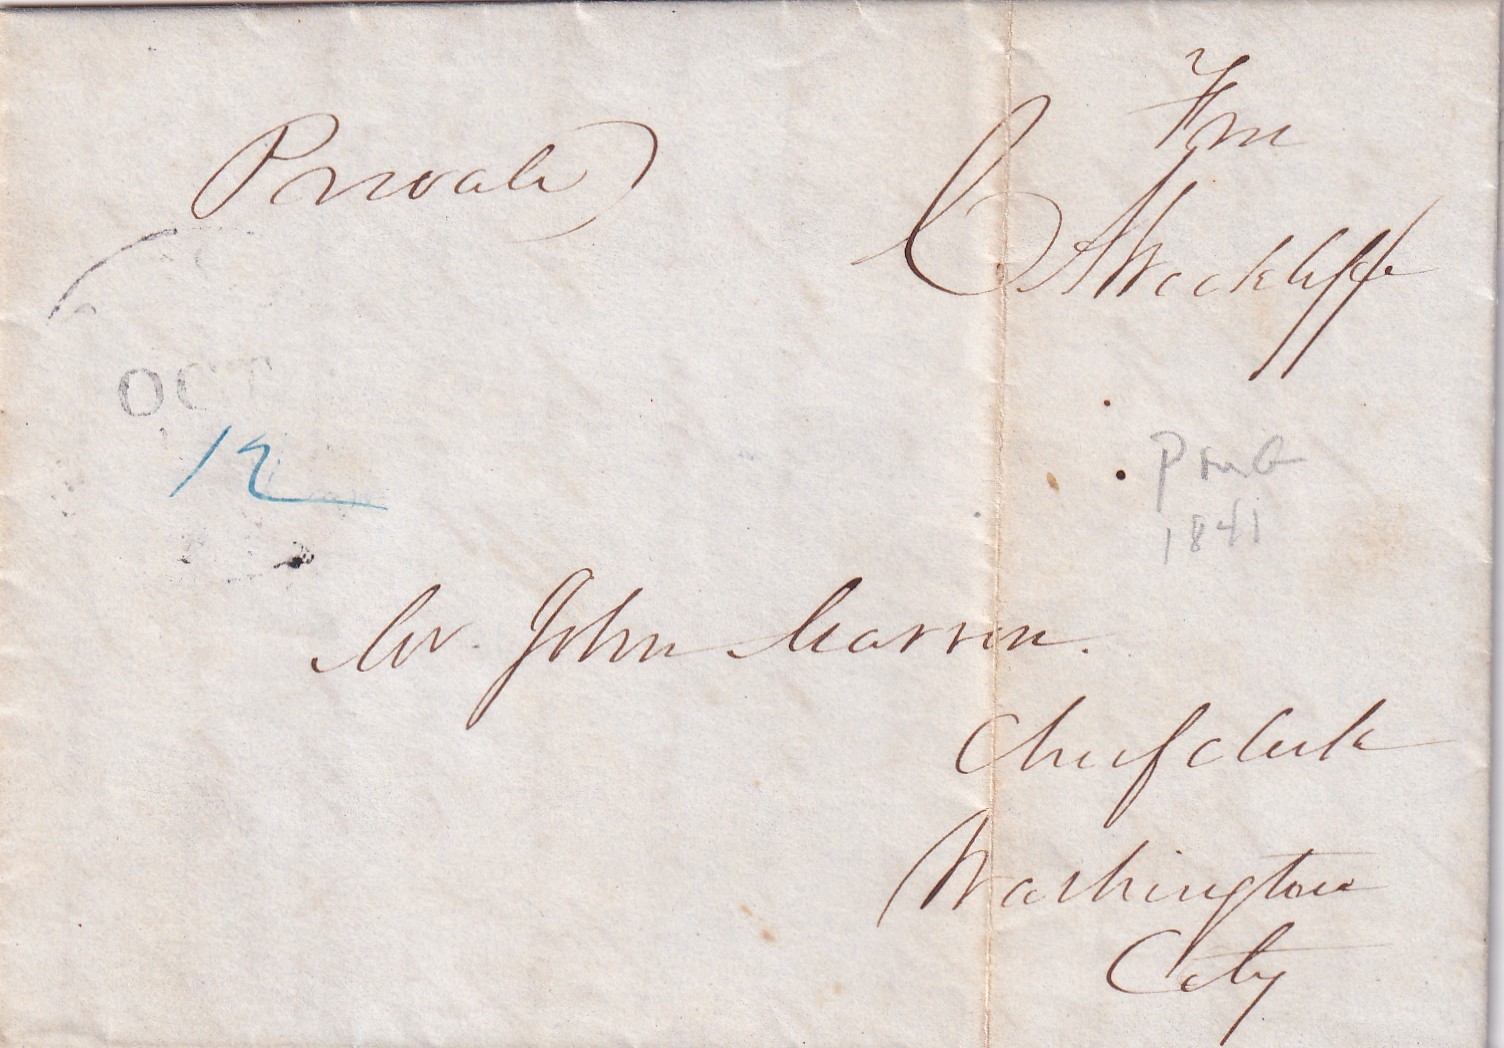 Private
Free
C A Wickliffe
OCT
12
PMG
1841
Mr. John Marron.
Chief clerk
Washington
City